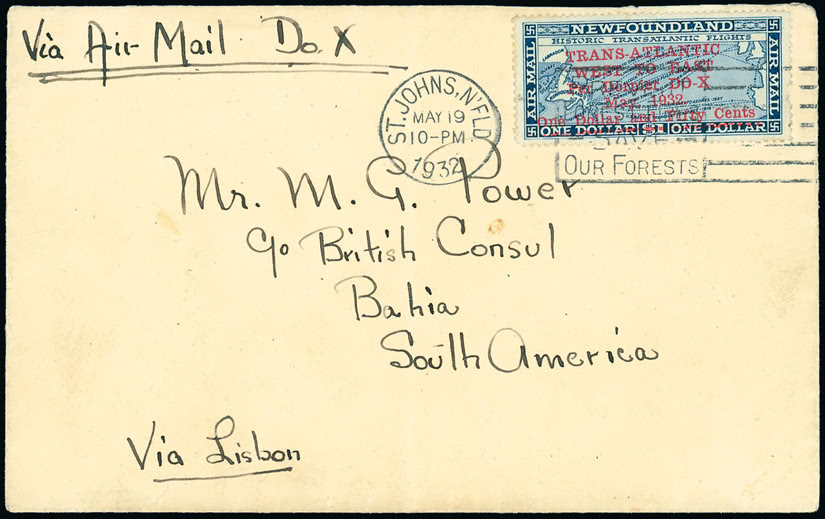 Via Air Mail Do X
NEWFOUNDLAND
HISTORIC TRANSATLANTIC FLIGHTS
AIR MAIL
AIR MAIL
TRANS-ATLANTIC
WEST TO EAST
Per Dornier DO-X
May, 1932.
One Dollar and Fifty Cents
ONE DOLLAR $1 ONE DOLLAR
ST. JOHNS, N'FLD.
MAY 19
10-PM
1932
SAVE
OUR FORESTS
Mr. M. G. Power
c/o British Consul
Bahia
South America
Via Lisbon